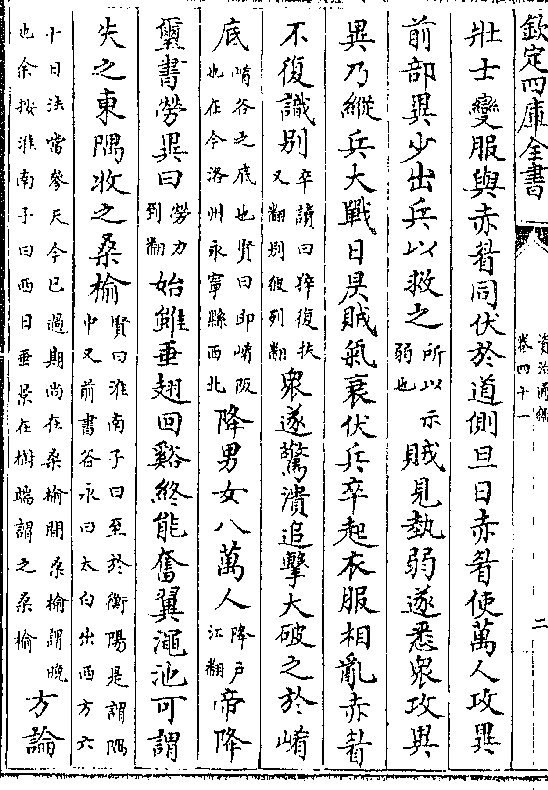 欽定四庫全書
資治通鑑
卷四十一
二
壯士變服與赤眉同伏於道側旦日赤眉使萬人攻異
前部異少出兵以救之所以示弱也賊見埶弱遂悉衆攻異
異乃縱兵大戰日昃賊氣衰伏兵卒起衣服相亂赤眉
不復識別卒讀曰猝復扶又翻别彼列翻衆遂驚潰追擊大破之於崤
底崤谷之底也賢曰即崤阪也在今洛州永寧縣西北降男女八萬人降戶江翻帝降
璽書勞異曰勞力到翻始雖垂翅回谿終能奮翼澠池可謂
失之東隅收之桑榆賢曰淮南子曰至於衡陽是謂隅中又前書谷永曰太白出西方六
十日法當參天今已過期尚在桑榆間桑榆謂晚也余按淮南子曰西日垂景在樹端謂之桑榆方論